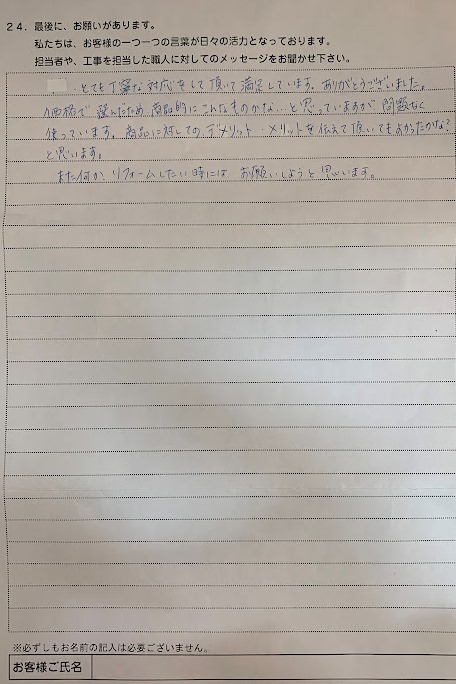 24．最後に、お願いがあります。
私たちは、お客様の一つ一つの言葉が日々の活力となっております。
担当者や、工事を担当した職人に対してのメッセージをお聞かせ下さい。
とても丁寧な対応をして頂いて満足しています。ありがとうございました。
価格で選んだため商品的にこんなものかな…と思っていますが問題なく
使っています。商品に対してのデメリット・メリットを伝えて頂いてもよかったかな？
と思います。
また何かリフォームしたい時にはお願いしようと思います。
※必ずしもお名前の記入は必要ございません。
お客様ご氏名